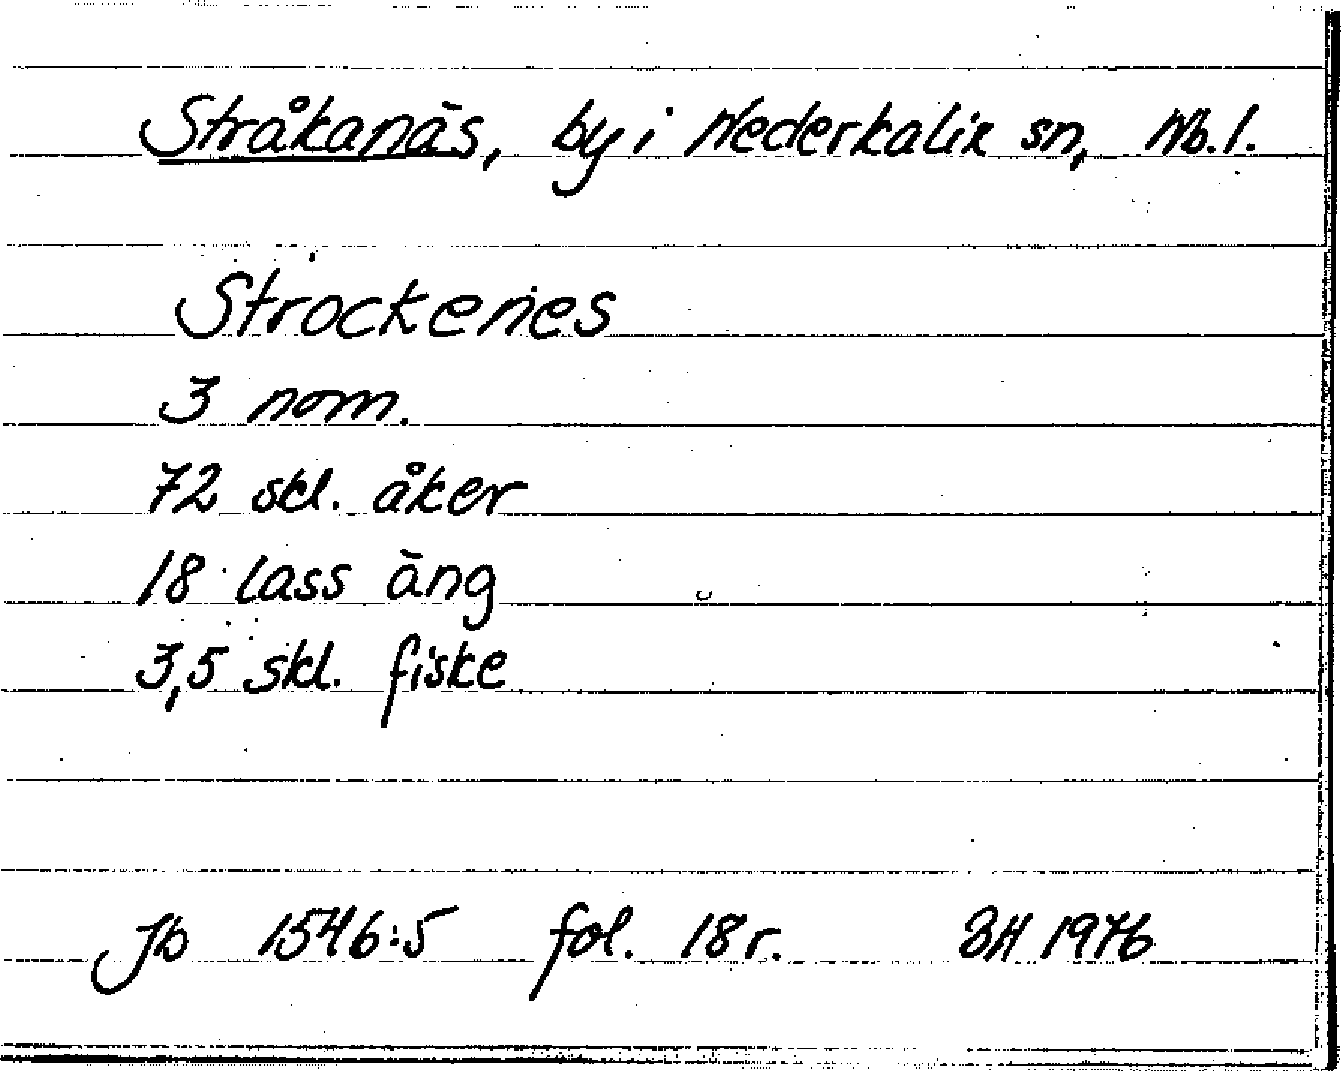 Stråkanäs, by i Nederkalix sn, Nb.l.
Strockenes
3 nom.
72 skl. åker
18 lass äng
3,5 skl. fiske
Jb 1546:5 fol. 18r. BH 1976